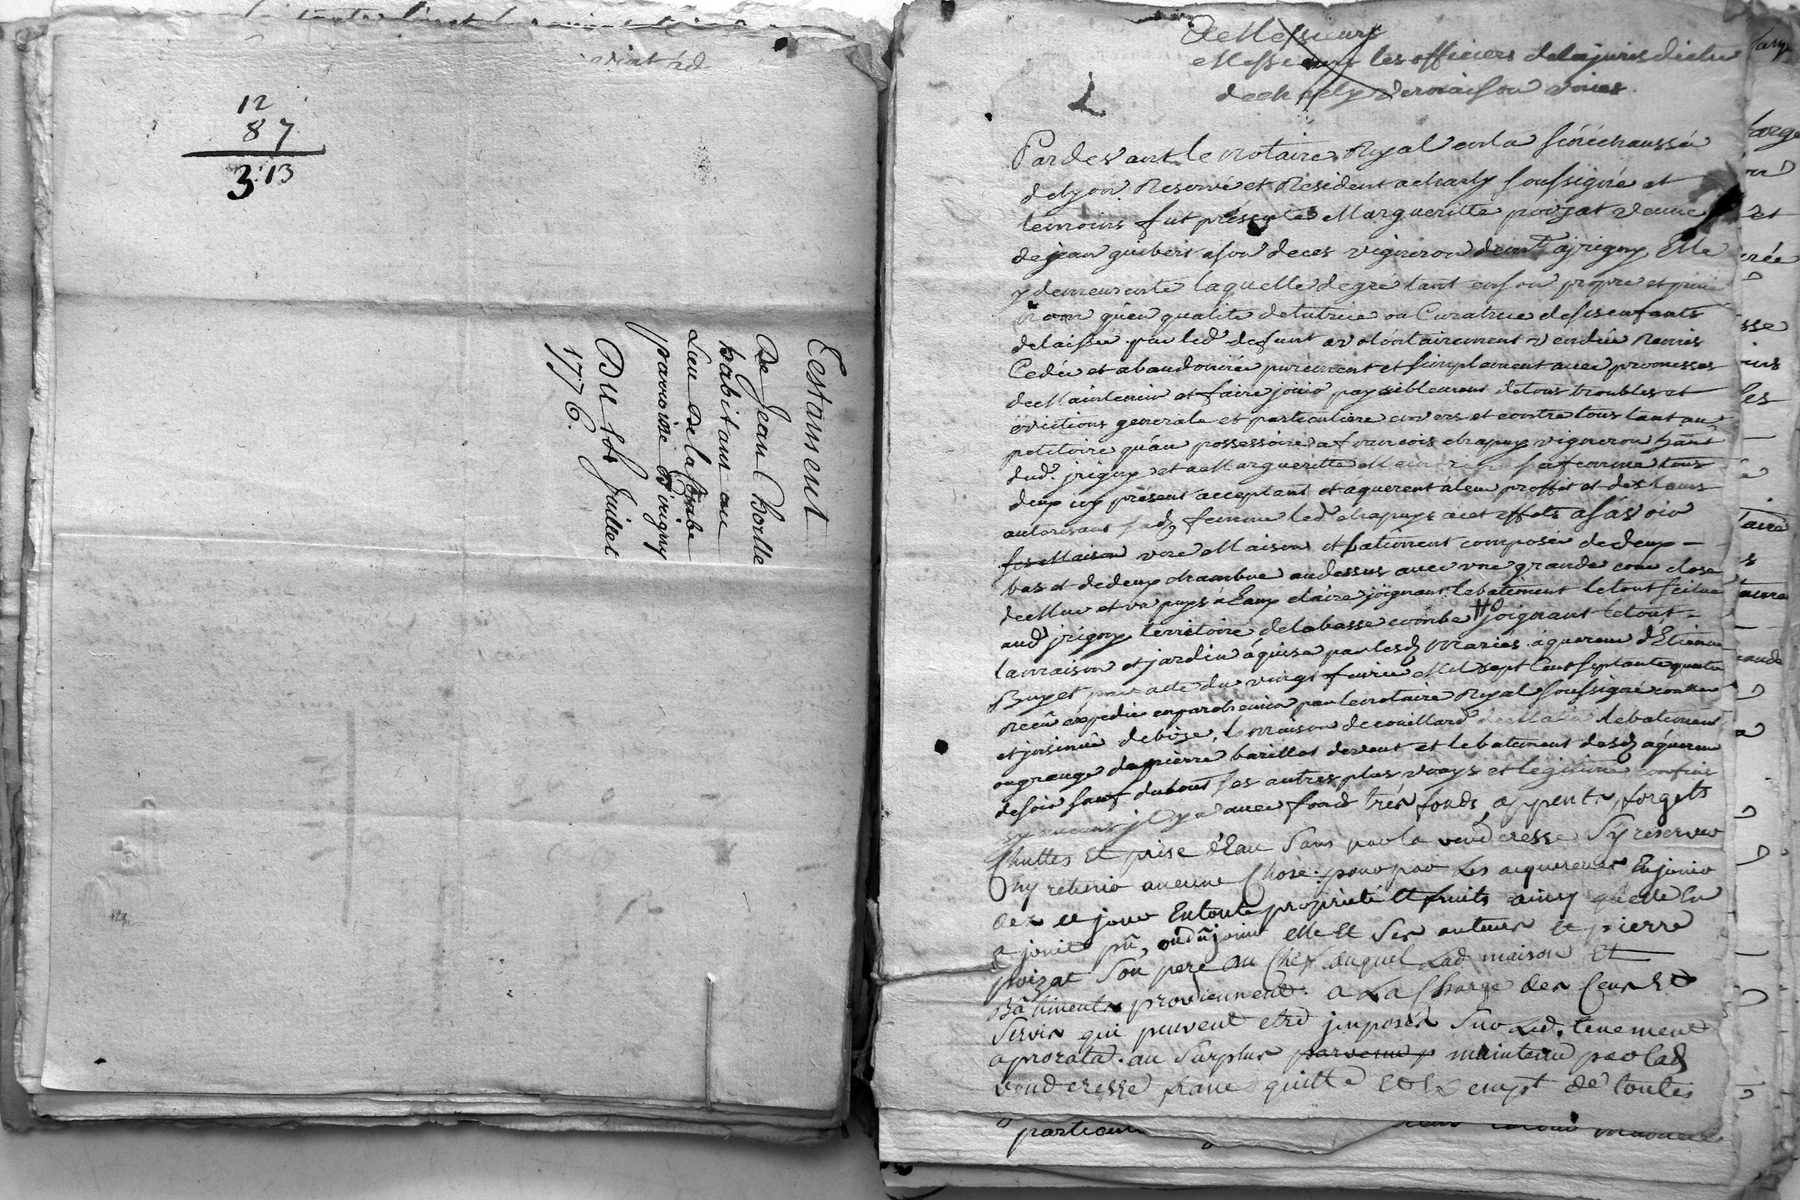 12
87
3 13
Testament
De Jean Cholle
habitant au
Lieu de la Combe
parroisse D'irigny
Du 14 Juillet
1776
De Messieurs
Messieurs les officiers de la jurisdiction
de charly vernaison
Pardevant le notaire Royal en la sénéchaussée
de lyon Reservé et Résident a charly soussigné et
temoins fut présente Margueritte poizat veuve
de jean guibert a son deces vigneron d'irigny Elle
y demeurante laquelle de gré tant en son propre et privé
nom qu'en qualité de tutrice ou Curatrice de ses enfants
delaissé par led. defunt a volontairement vendu Remis
Cedé et abandonné purement et simplement avec promesses
de Maintenir et faire jouir paysiblement de tous troubles et
évictions generale et particuliere envers et contre tous tant au
petitoire qu'au possessoire a francois chapuy vigneron hant
dud. jrigny et a Margueritte sa femme tous
deux icy présent acceptant et aquerent a leur proffit et des leurs
autorisant sad. femme led. chapuys a cet effets asavoir
ses Maison une Maison et batiment composé de deux
bas et de deux chambre au dessus avec une grande cour close
de Mur et un puys a Eaux claire joignant le batiment le tout scitué
aud. jrigny territoire de la basse combe joignant le tout
la maison et jardin aquise par lesd. mariés aquereur d'Etienne
Buyet par acte du vingt fevrier Mil sept Cent septante quatre
Receu expedié en parchemin par le notaire Royal soussigné
et jnsinué de bize, la maison de couillard de Matin le batiment
ou grange de pierre barillot de vent et le batiment desd. aquereur
de soir sauf du tout ses autres plus vrays et legitime confins
sy aucuns jl y a avec fond tréfonds, appents, forgets
Chuttes Et prise d'Eau Sans par la venderesse S'y reserver
Ny retenir aucune Chose. pour par Les aquereurs En jouir
dès ce jour En toute proprieté Et fruits ainsy qu'elle En
a jouit pû, ou dû jouir elle Et Ses auteurs Et pierre
poizat Son pere Du Chef duquel Lad. maison Et
Bâtiments proviennent. a La Charge des Cens Et
Servis qui peuvent etre jmposés Sur Led. tenement
a prorata. au Surplus maintenu par Lad.
venderesse franc quitte Et Exempt de toutes